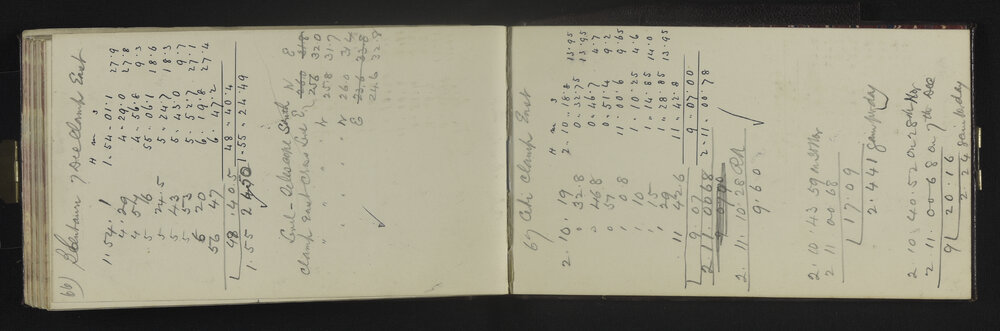 66)
7 Dec Clamp East
H m s
1. 54. 1 1. 54. 01. 1 27.9
4. 29 4. 29. 0 27.8
4 54 4. 56. 8 9.3
5 16 55. 06. 1 18.6
5 24.5 5. 24. 7 18.3
5 43 5. 43. 0 9.7
5 53 5. 52. 7 27.1
6 20 6. 19. 8 27.4
56 47 6 47. 2
48. 40. 5 48. 40. 4
1. 55 24.50 1. 55. 24. 49
Level - Telescope South W E
260 318
Clamp East Cross Level E 256 320
" " " W 258 31.7
" " " W 260 31.4
E 23.6 33.8
24.6 32.8
67 Ceti Clamp East
H m s
2. 10. 19 2. 10. 18.8 13.95
0 32.8 0. 32.75 13.95
0 46.8 0. 46.7 4.7
0 57 0. 51.4 9.2
1 0.8 11 00.6 9.65
1 10 1. 10.25 4.6
1 15 1. 14.85 14.0
1 29 1. 28.85 13.95
11 42.6 11 42.8
9 07 9. 07 00
2. 11. 0068 2. 11. 00. 78
9 07 00
2. 11. 10. 28 RA
9. 60
2. 10. 43. 59
2 11 00 68
17. 09
2. 441 gain per day
2. 10. 40. 52 on 28th Nov
2. 11. 00 68 on 7th Dec
9 20. 16
2. 24 gain per day